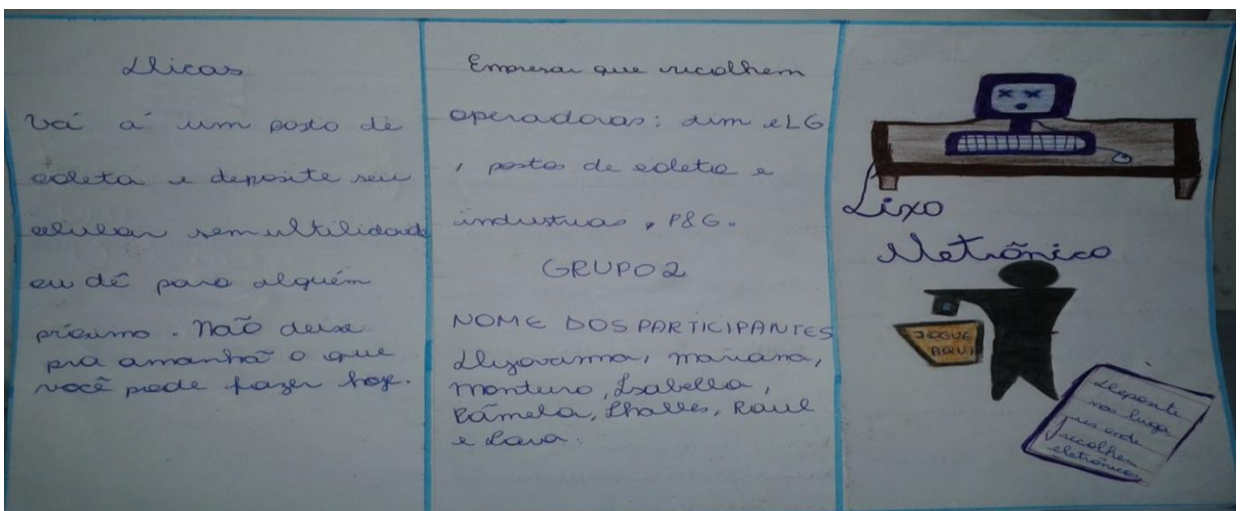 Dicas
Vá a um posto de
coleta e deposite seu
celular sem ultilidade
ou dê para alguém
próximo. Não deixe
pra amanhã o que
você pode fazer hoje.
Empresas que recolhem
operadoras: tim e LG
, postos de coleta e
industrias, P&G.
GRUPO 2
NOME DOS PARTICIPANTES
mariana,
Isabella,
Pâmela, Thalles, Raul
e Lara.
Lixo
Eletrônico
JOGUE
AQUI
Deposite
nos luga
res onde
recolhem
eletrônicos